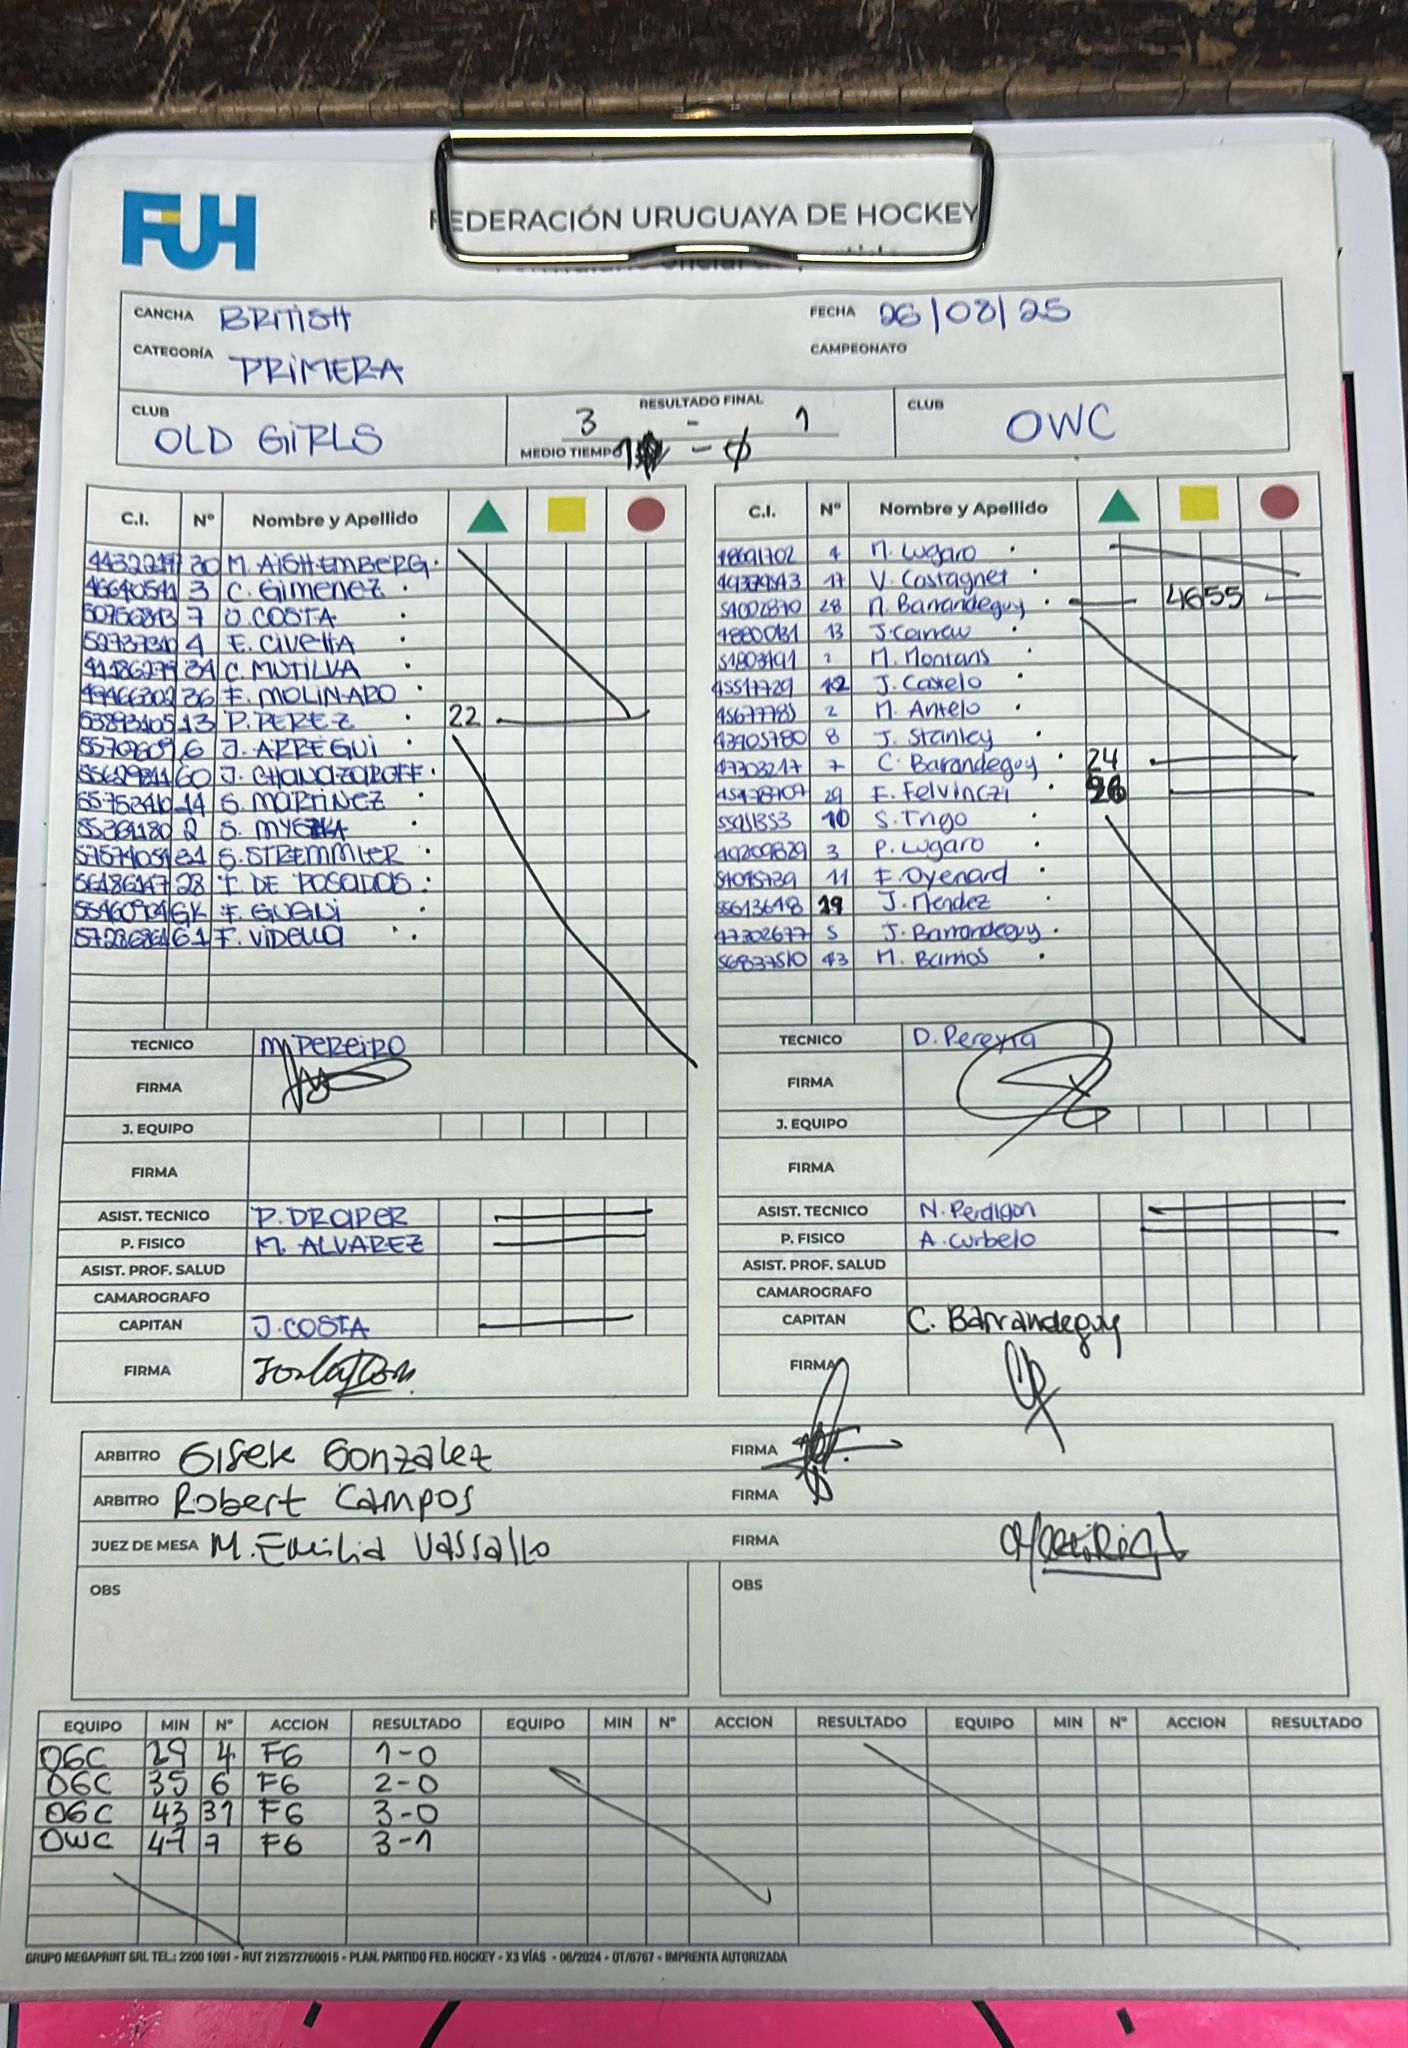 FUH
FEDERACIÓN URUGUAYA DE HOCKEY
CANCHA BRITISH
FECHA 26/08/25
CATEGORÍA PRIMERA
CAMPEONATO
CLUB OLD GIRLS
RESULTADO FINAL 3 - 1
MEDIO TIEMPO 1 - 0
CLUB OWC
C.I. Nº Nombre y Apellido
30 M. AISHEMBERG
46640541 3 C. GIMENEZ
7 J. COSTA
4 F. CIVETTA
34 C. MUTILVA
36 F. MOLINARO
13 P. PEREZ 22
6 J. ARREGUI
60 J. CHANAZAROFF
14 S. MARTINEZ
2 S. MYSZKA
31 S. STREMMLER
56186147 28 T. DE POSADAS
GK F. GUGLI
61 F. VIDELLA
TECNICO M. PEREIRO
FIRMA
J. EQUIPO
FIRMA
ASIST. TECNICO P. DRAPER
P. FISICO M. ALVAREZ
ASIST. PROF. SALUD
CAMAROGRAFO
CAPITAN J. COSTA
FIRMA
C.I. Nº Nombre y Apellido
48691702 4 M. Lugaro
17 V. Costagnet
51002870 28 M. Barrandeguy 46 55
13 J. Carrau
2 M. Montans
45517729 12 J. Castelo
45677785 2 M. Antelo
43905780 8 J. Stanley
47303217 7 C. Barandeguy 24
29 F. Felvinczi 26
55951353 10 S. Trigo
3 P. Lugaro
11 F. Oyenard
55613648 19 J. Mendez
47302677 5 J. Barrandeguy
56837510 43 M. Barrios
TECNICO D. Pereyra
FIRMA
J. EQUIPO
FIRMA
ASIST. TECNICO N. Perdigon
P. FISICO A. Curbelo
ASIST. PROF. SALUD
CAMAROGRAFO
CAPITAN C. Barrandeguy
FIRMA
ARBITRO Gisele Gonzalez FIRMA
ARBITRO Robert Campos FIRMA
JUEZ DE MESA M. Emilia Vassallo FIRMA
OBS OBS
EQUIPO MIN Nº ACCION RESULTADO EQUIPO MIN Nº ACCION RESULTADO EQUIPO MIN Nº ACCION RESULTADO
OGC 29 4 FG 1-0
OGC 35 6 FG 2-0
OGC 43 31 FG 3-0
OWC 47 7 FG 3-1
GRUPO MEGAPRINT SRL TEL.: 2200 1091 - RUT 212572760015 - PLAN. PARTIDO FED. HOCKEY - X3 VÍAS - 06/2024 - OT/6767 - IMPRENTA AUTORIZADA